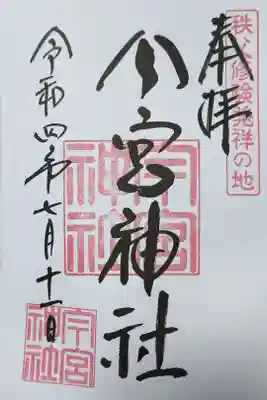 秩父修験発祥の地
奉拝
今宮神社
今宮
神社
令和四年七月十一日
今宮
神社